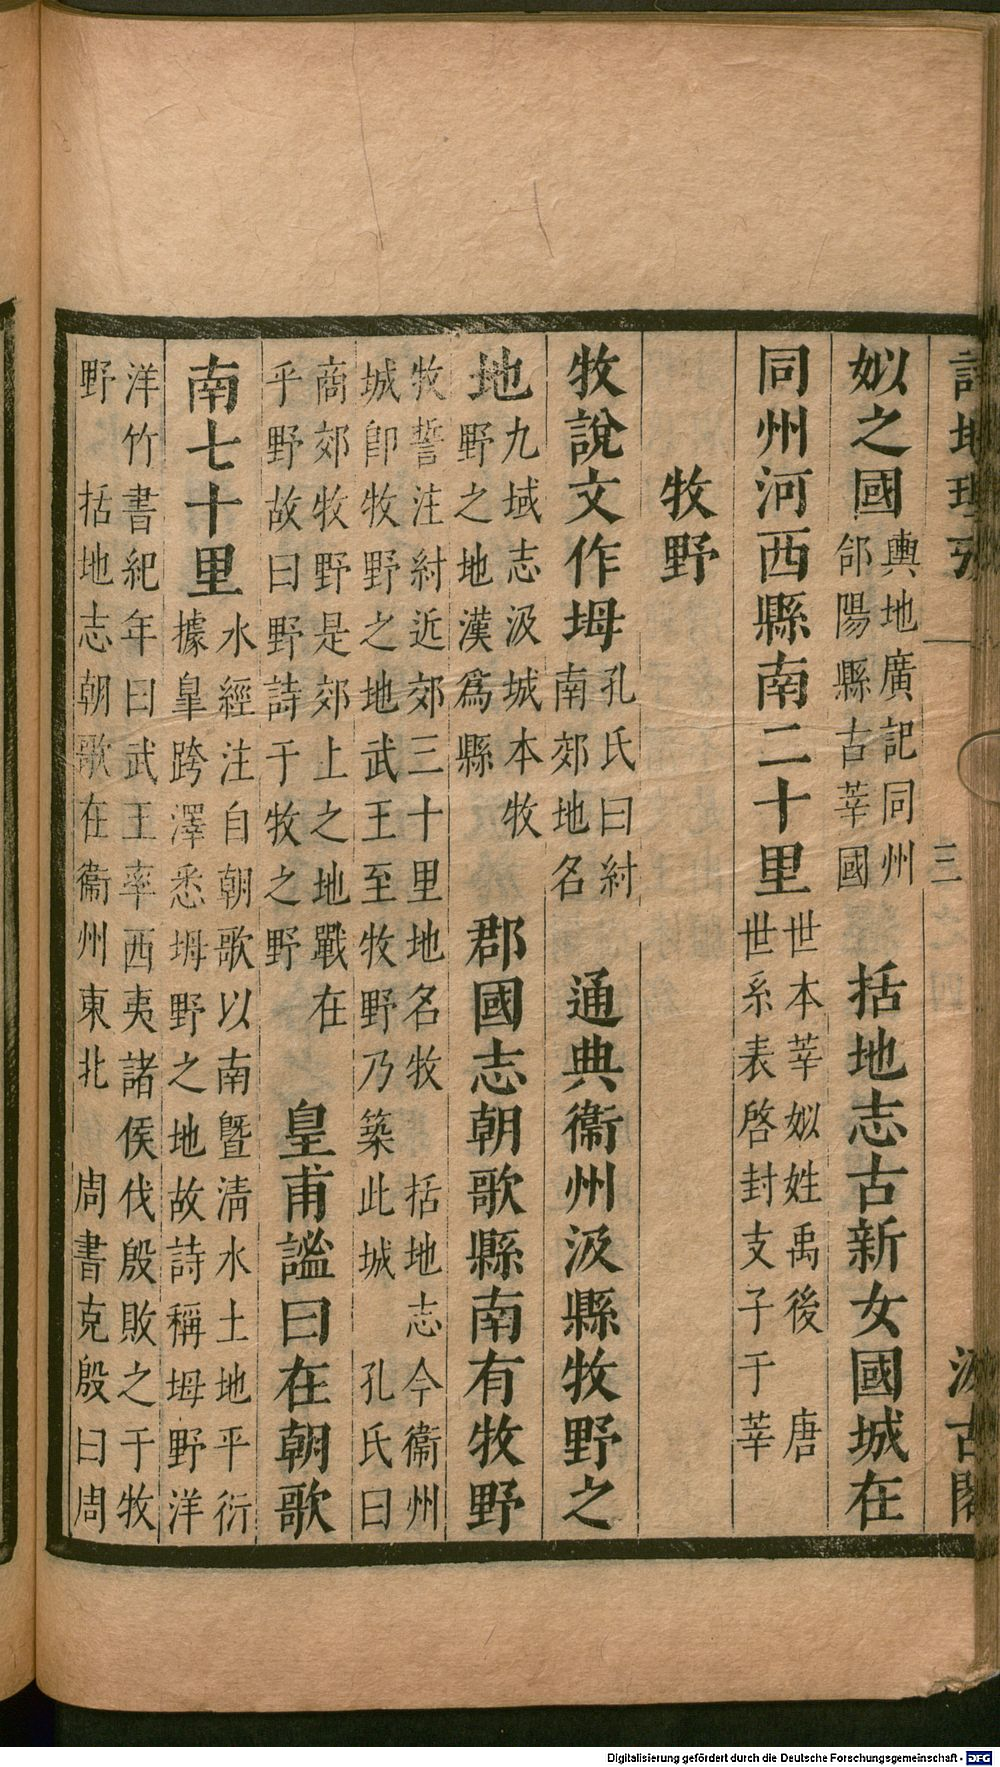 詩地理攷 三 汲古閣
姒之國輿地廣記同州郃陽縣古莘國 括地志古新女國城在
同州河西縣南二十里世本莘姒姓禹後 唐世系表啓封支子于莘
牧野
牧說文作坶孔氏曰紂南郊地名 通典衞州汲縣牧野之
地九域志汲城本牧野之地漢爲縣 郡國志朝歌縣南有牧野
牧誓注紂近郊三十里地名牧 括地志今衞州
城卽牧野之地武王至牧野乃築此城 孔氏曰
商郊牧野是郊上之地戰在乎野故曰野詩于牧之野 皇甫謐曰在朝歌
南七十里水經注自朝歌以南暨淸水土地平衍據臯跨澤悉坶野之地故詩稱坶野洋
洋竹書紀年曰武王率西夷諸侯伐殷敗之于牧
野 括地志朝歌在衞州東北 周書克殷曰周
Digitalisierung gefördert durch die Deutsche Forschungsgemeinschaft - DFG